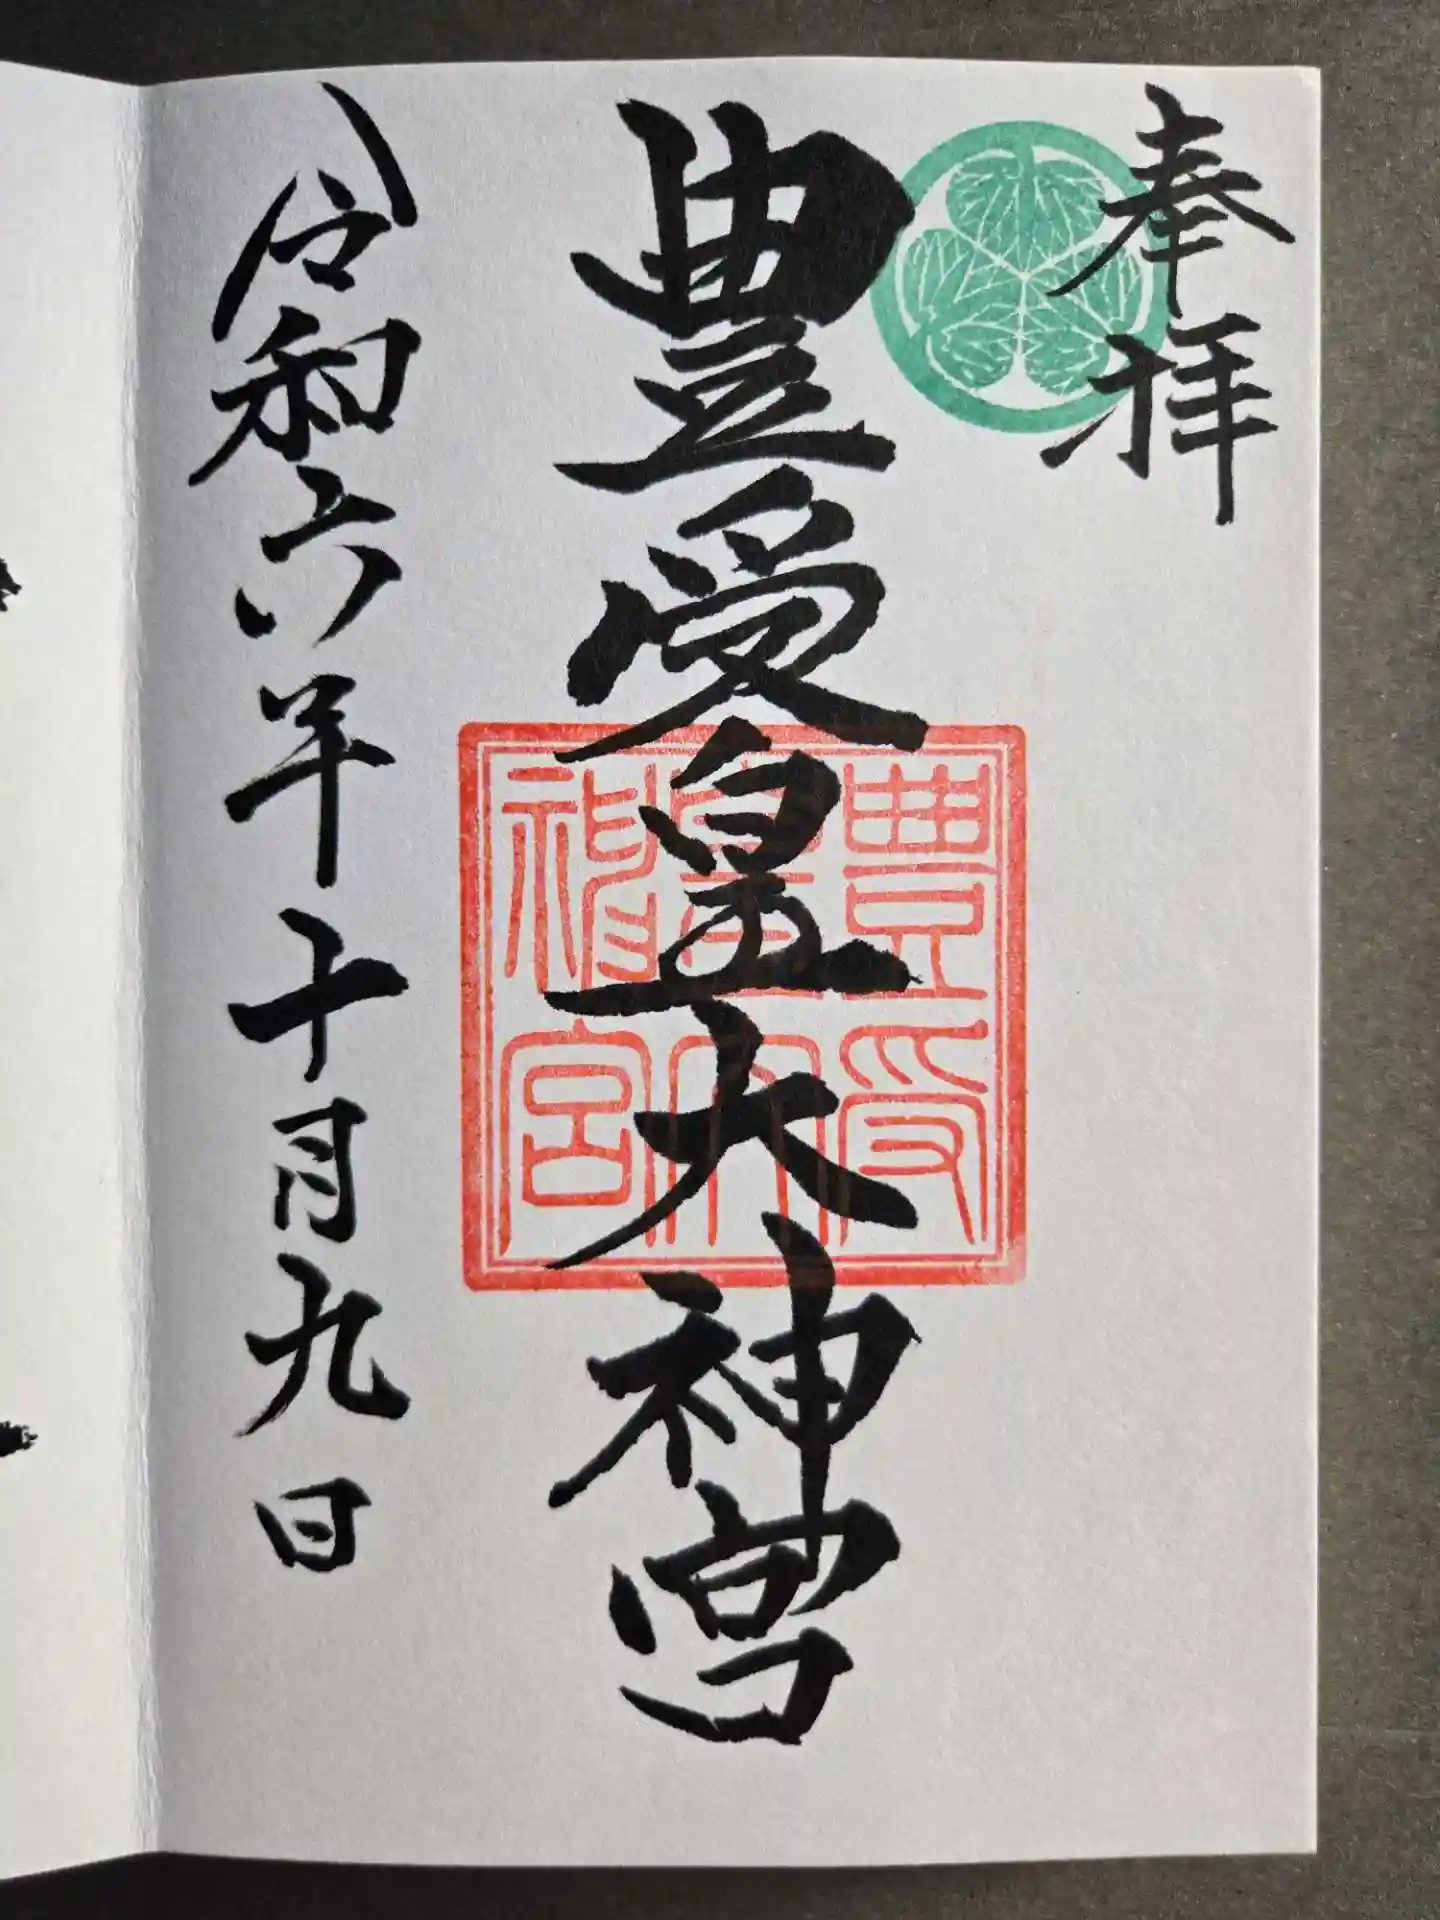 奉拝
豊受皇大神宮
豊受皇大神宮
令和六年十月九日